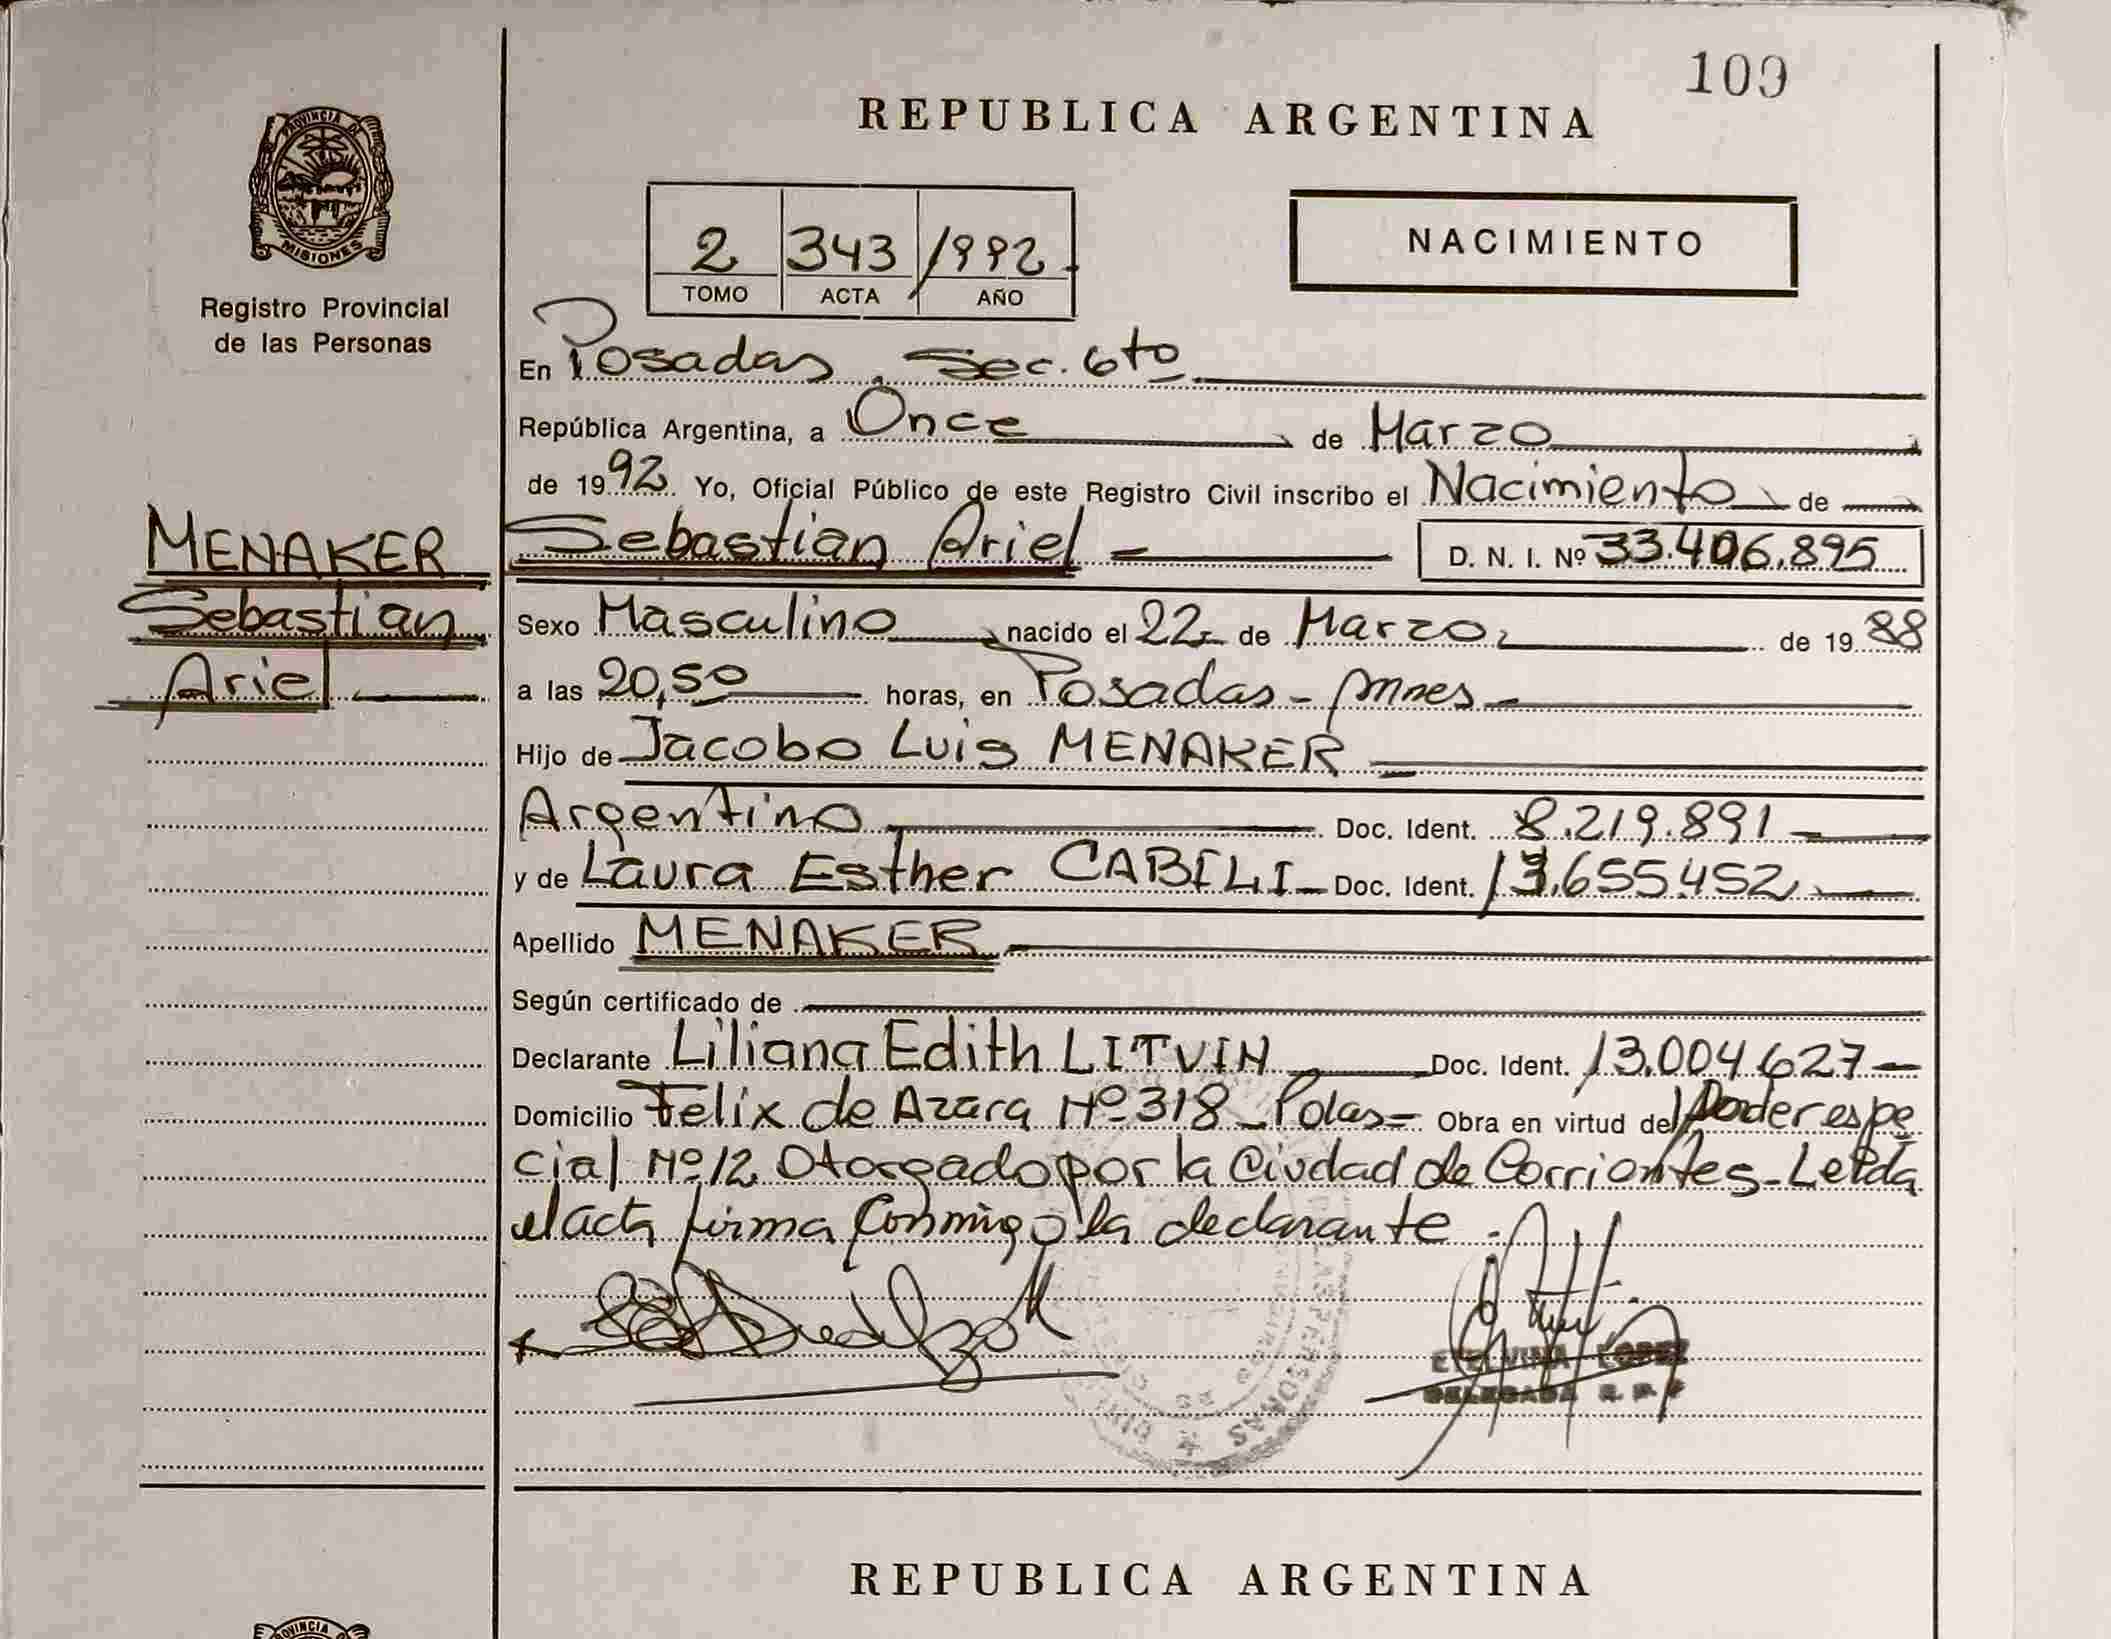 109
REPUBLICA ARGENTINA
PROVINCIA DE
MISIONES
Registro Provincial
de las Personas
2 343 1992
TOMO ACTA AÑO
NACIMIENTO
En Posadas, Sec. 6to
República Argentina, a Once de Marzo
de 1992. Yo, Oficial Público de este Registro Civil inscribo el Nacimiento de
MENAKER
Sebastian
Ariel
Sebastian Ariel D. N. I. Nº 33.406.895
Sexo Masculino nacido el 22 de Marzo de 1988
a las 20,50 horas, en Posadas - Mnes
Hijo de Jacobo Luis MENAKER
Argentino Doc. Ident. 8.219.891
y de Laura Esther CABILI Doc. Ident. 13.655.452
Apellido MENAKER
Según certificado de
Declarante Liliana Edith LITVIN Doc. Ident. 13.004.627
Domicilio Felix de Azara Nº 318 - Pdas - Obra en virtud del Poder espe
cial Nº 12 Otorgado por la Ciudad de Corrientes - Leida
el acta firma conmigo la declarante
ETELVINA LOPEZ
DELEGADA R. P. P
REPUBLICA ARGENTINA
PROVINCIA